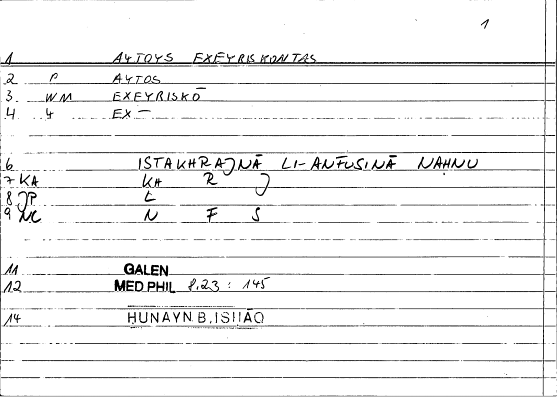 1
1 AYTOYS EXEYRISKONTAS
2 P AYTOS
3 WM EXEYRISKŌ
4 4 EX—
6 ISTAKHRAJNĀ LI-ANFUSINĀ NAḤNU
7 KA KH R J
8 JP L
9 NC N F S
11 GALEN
12 MED PHIL 8,23 : 145
14 HUNAYN B. ISHĀQ